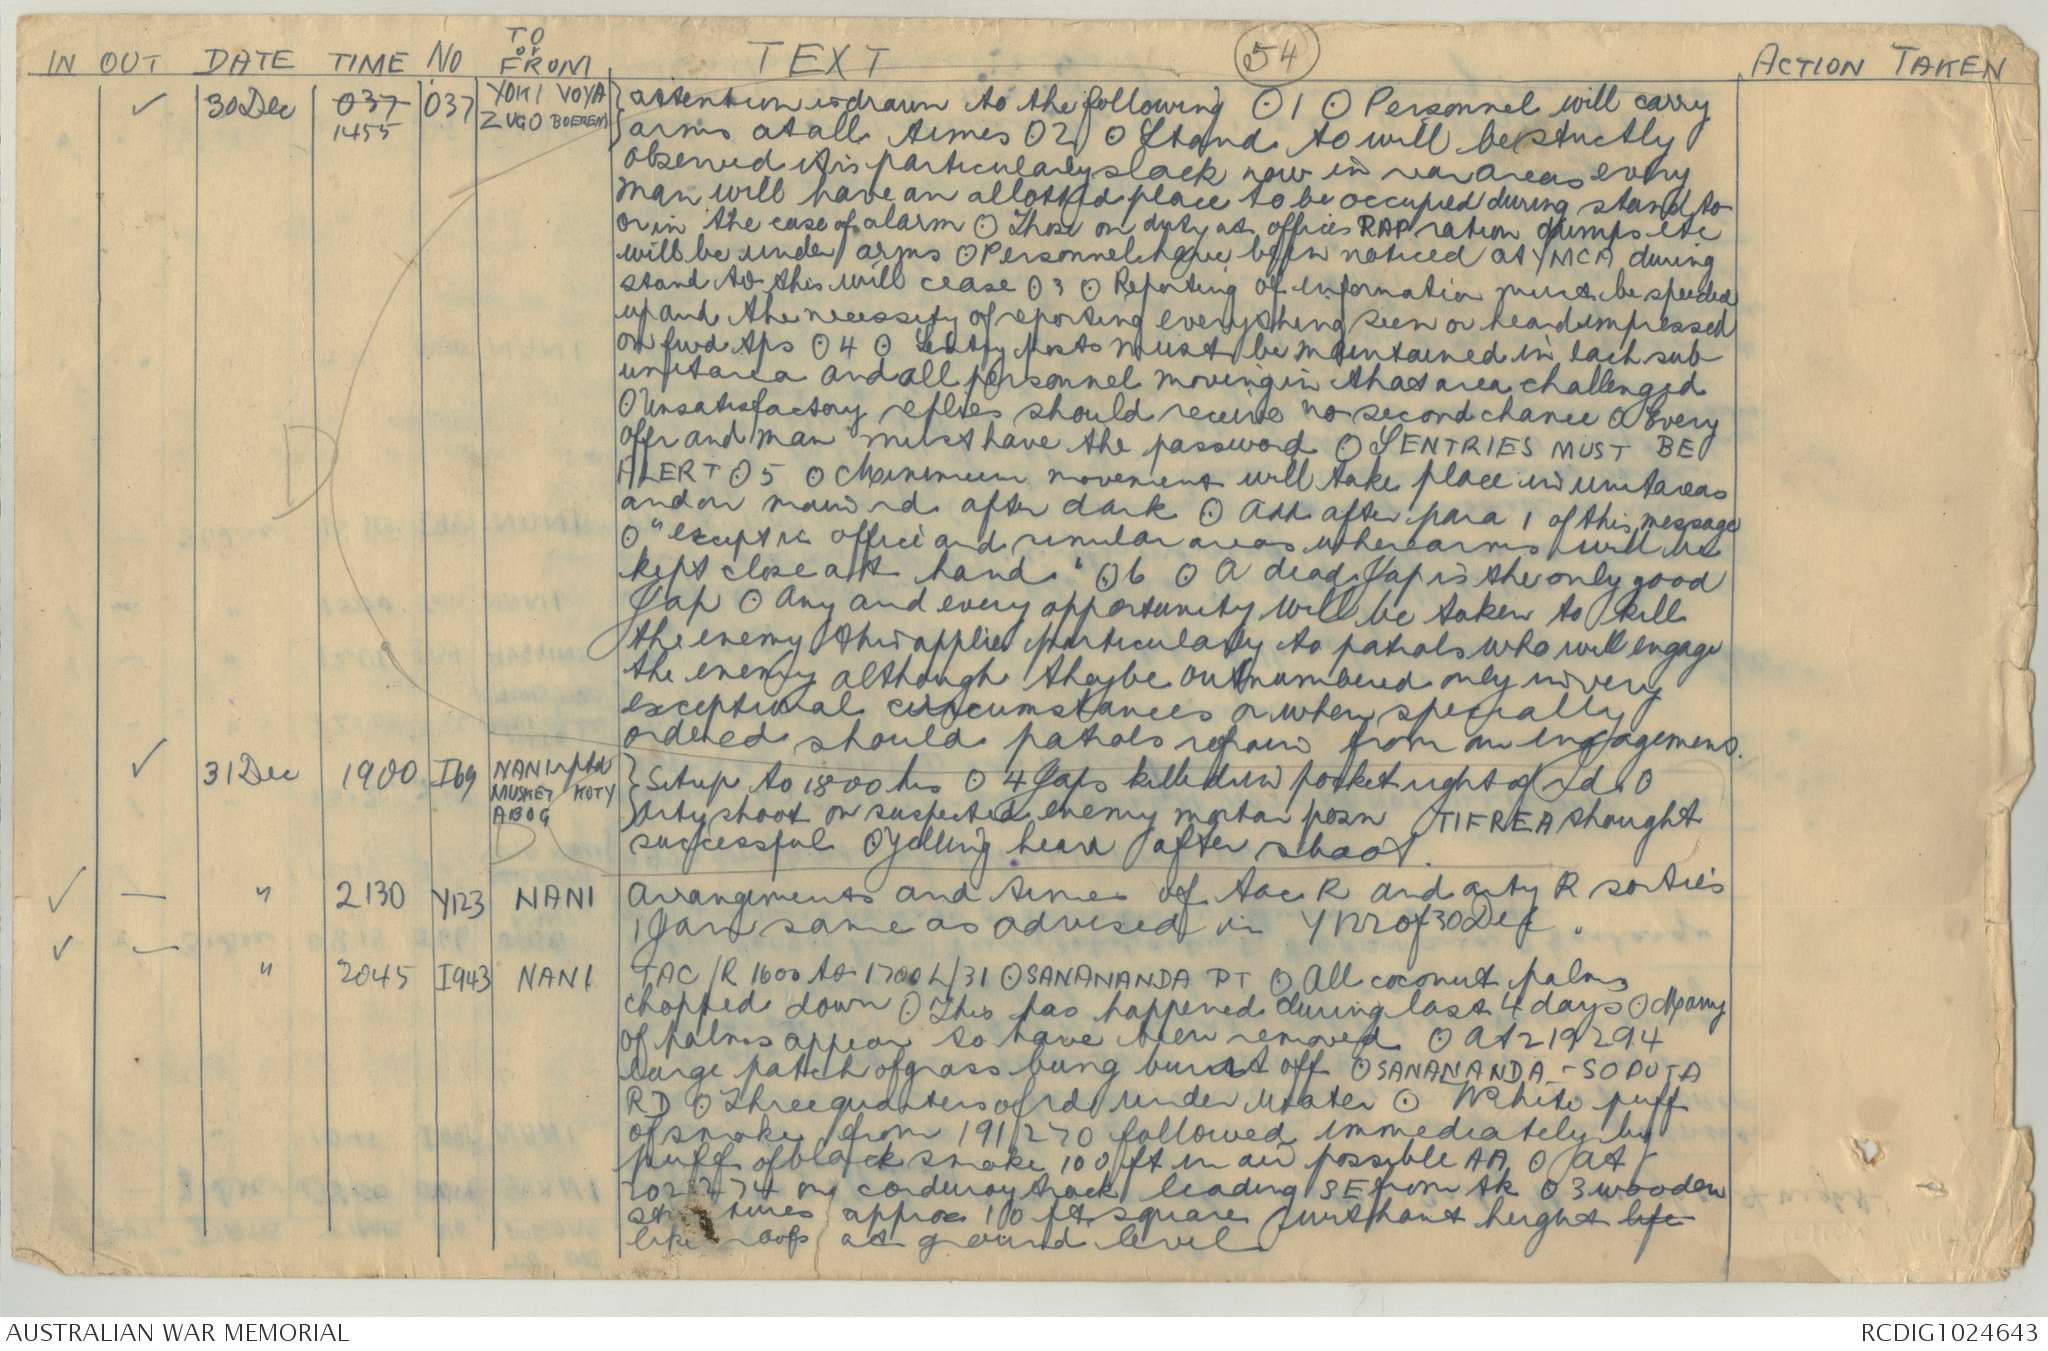 IN OUT DATE TIME NO TO or FROM TEXT 54 ACTION TAKEN
✓ 30 Dec 037 1455 037 YOKI VOYA ZUGO BOEREM
attention is drawn to the following ⊙ 1 ⊙ Personnel will carry
arms at all times ⊙ 2 ⊙ Stand to will be strictly
observed it is particularly slack now in rear areas every
man will have an allotted place to be occupied during stand to
or in the case of alarm ⊙ Those on duty at offices RAP ration dumps etc
will be under arms ⊙ Personnel have been noticed at YMCA during
stand to this will cease ⊙ 3 ⊙ Reporting of information must be speeded
up and the necessity of reporting everything seen or heard impressed
on fwd tps ⊙ 4 ⊙ Sentry posts must be maintained in each sub
unit area and all personnel moving in that area challenged
⊙ Unsatisfactory replies should receive no second chance ⊙ Every
offr and man must have the password ⊙ SENTRIES MUST BE
ALERT ⊙ 5 ⊙ Minimum movement will take place in unit areas
and on main rd after dark ⊙ Add after para 1 of this message
⊙ "except in office and similar areas where arms will be
kept close at hand" ⊙ 6 ⊙ A dead Jap is the only good
Jap ⊙ Any and every opportunity will be taken to kill
the enemy this applies particularly to patrols who will engage
the enemy although they be outnumbered only in very
exceptional circumstances or when specially
ordered should patrols refrain from an engagement.
✓ 31 Dec 1900 I69 NANI rptd MUSKET KOTY ABOG
Sitrep to 1800 hrs ⊙ 4 Japs killed in pocket right of rd ⊙
Arty shoot on suspected enemy mortar posn TIFREA thought
successful ⊙ Yelling heard after shoot.
✓ — " 2130 Y123 NANI Arrangements and times of tac R and arty R sorties
1 Jan same as advised in Y122 of 30 Dec.
✓ — " 2045 I943 NANI TAC/R 1600 to 1700 L/31 ⊙ SANANANDA PT ⊙ All coconut palms
chopped down ⊙ This has happened during last 4 days ⊙ Many
of palms appear to have been removed ⊙ At 219294
large patch of grass being burnt off ⊙ SANANANDA - SOPUTA
RD ⊙ Three quarters of rd under water ⊙ White puff
of smoke from 191270 followed immediately by
puff of black smoke 100 ft in air possible AA ⊙ At
on corduroy track leading SE from tk ⊙ 3 wooden
structures approx 10 ft square without height life
like roofs at ground level
AUSTRALIAN WAR MEMORIAL RCDIG1024643